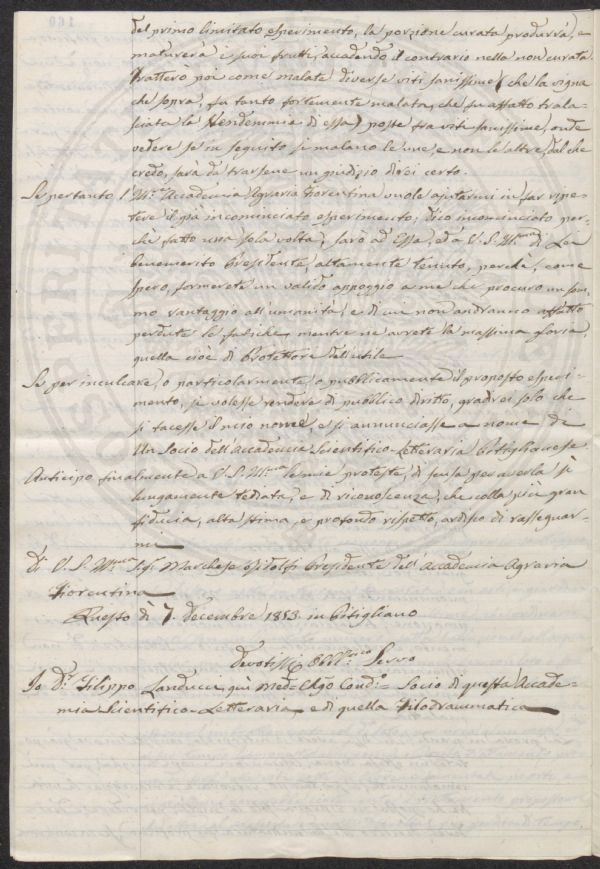 del primo limitato esperimento, la porzione curata produrrà, e
maturerà i suoi frutti, accadendo il contrario nella non curata.
Tratterò poi come malate diverse viti sanissime (che la vigna
che sopra, fu tanto fortemente malata, che fu affatto trala-
sciata la Vendemmia di essa) poste fra viti sanissime, onde
vedere se in seguito si malano le une, e non le altre, dal che
credo, sarà da trarsene un giudizio direi certo.
Se pertanto l' Accademia Agraria Fiorentina vuole ajutarmi in far ripe-
tere il già incominciato esperimento, dico incominciato per-
chè fatto una sola volta, sarò ad Essa, ed a V. S. di Lei
benemerito Presidente, altamente tenuto, perchè, come
spero, formerete un valido appoggio a me che procuro un som-
mo vantaggio all'umanità, e di cui non andranno affatto
perdute le fatiche, mentre ne avrete la massima gloria,
quella cioè di Protettore dell'utile
Se per inculcare, o particolarmente, o pubblicamente il proposto esperi-
mento, si volesse rendere di pubblico diritto, gradirei solo che
si tacesse il mio nome, e si annunciasse a nome di
Un Socio dell'Accademia Scientifico-Letteraria Pitiglianese
Anticipo finalmente a V. S. le mie proteste, di scusa per averla sì
lungamente tediata, e di riconoscenza, che colla più gran
fiducia, alta stima, e profondo rispetto, ardisco di rassegnar-
mi
Di V. S. Sig. Marchese Ridolfi Presidente dell'Accademia Agraria
Fiorentina
Questo dì 7. Decembre 1853. in Pitigliano
Servo
Io D. Filippo Landucci quì Med. Socio di questa Accade-
mia Scientifico-Letteraria, e di quella Filodrammatica